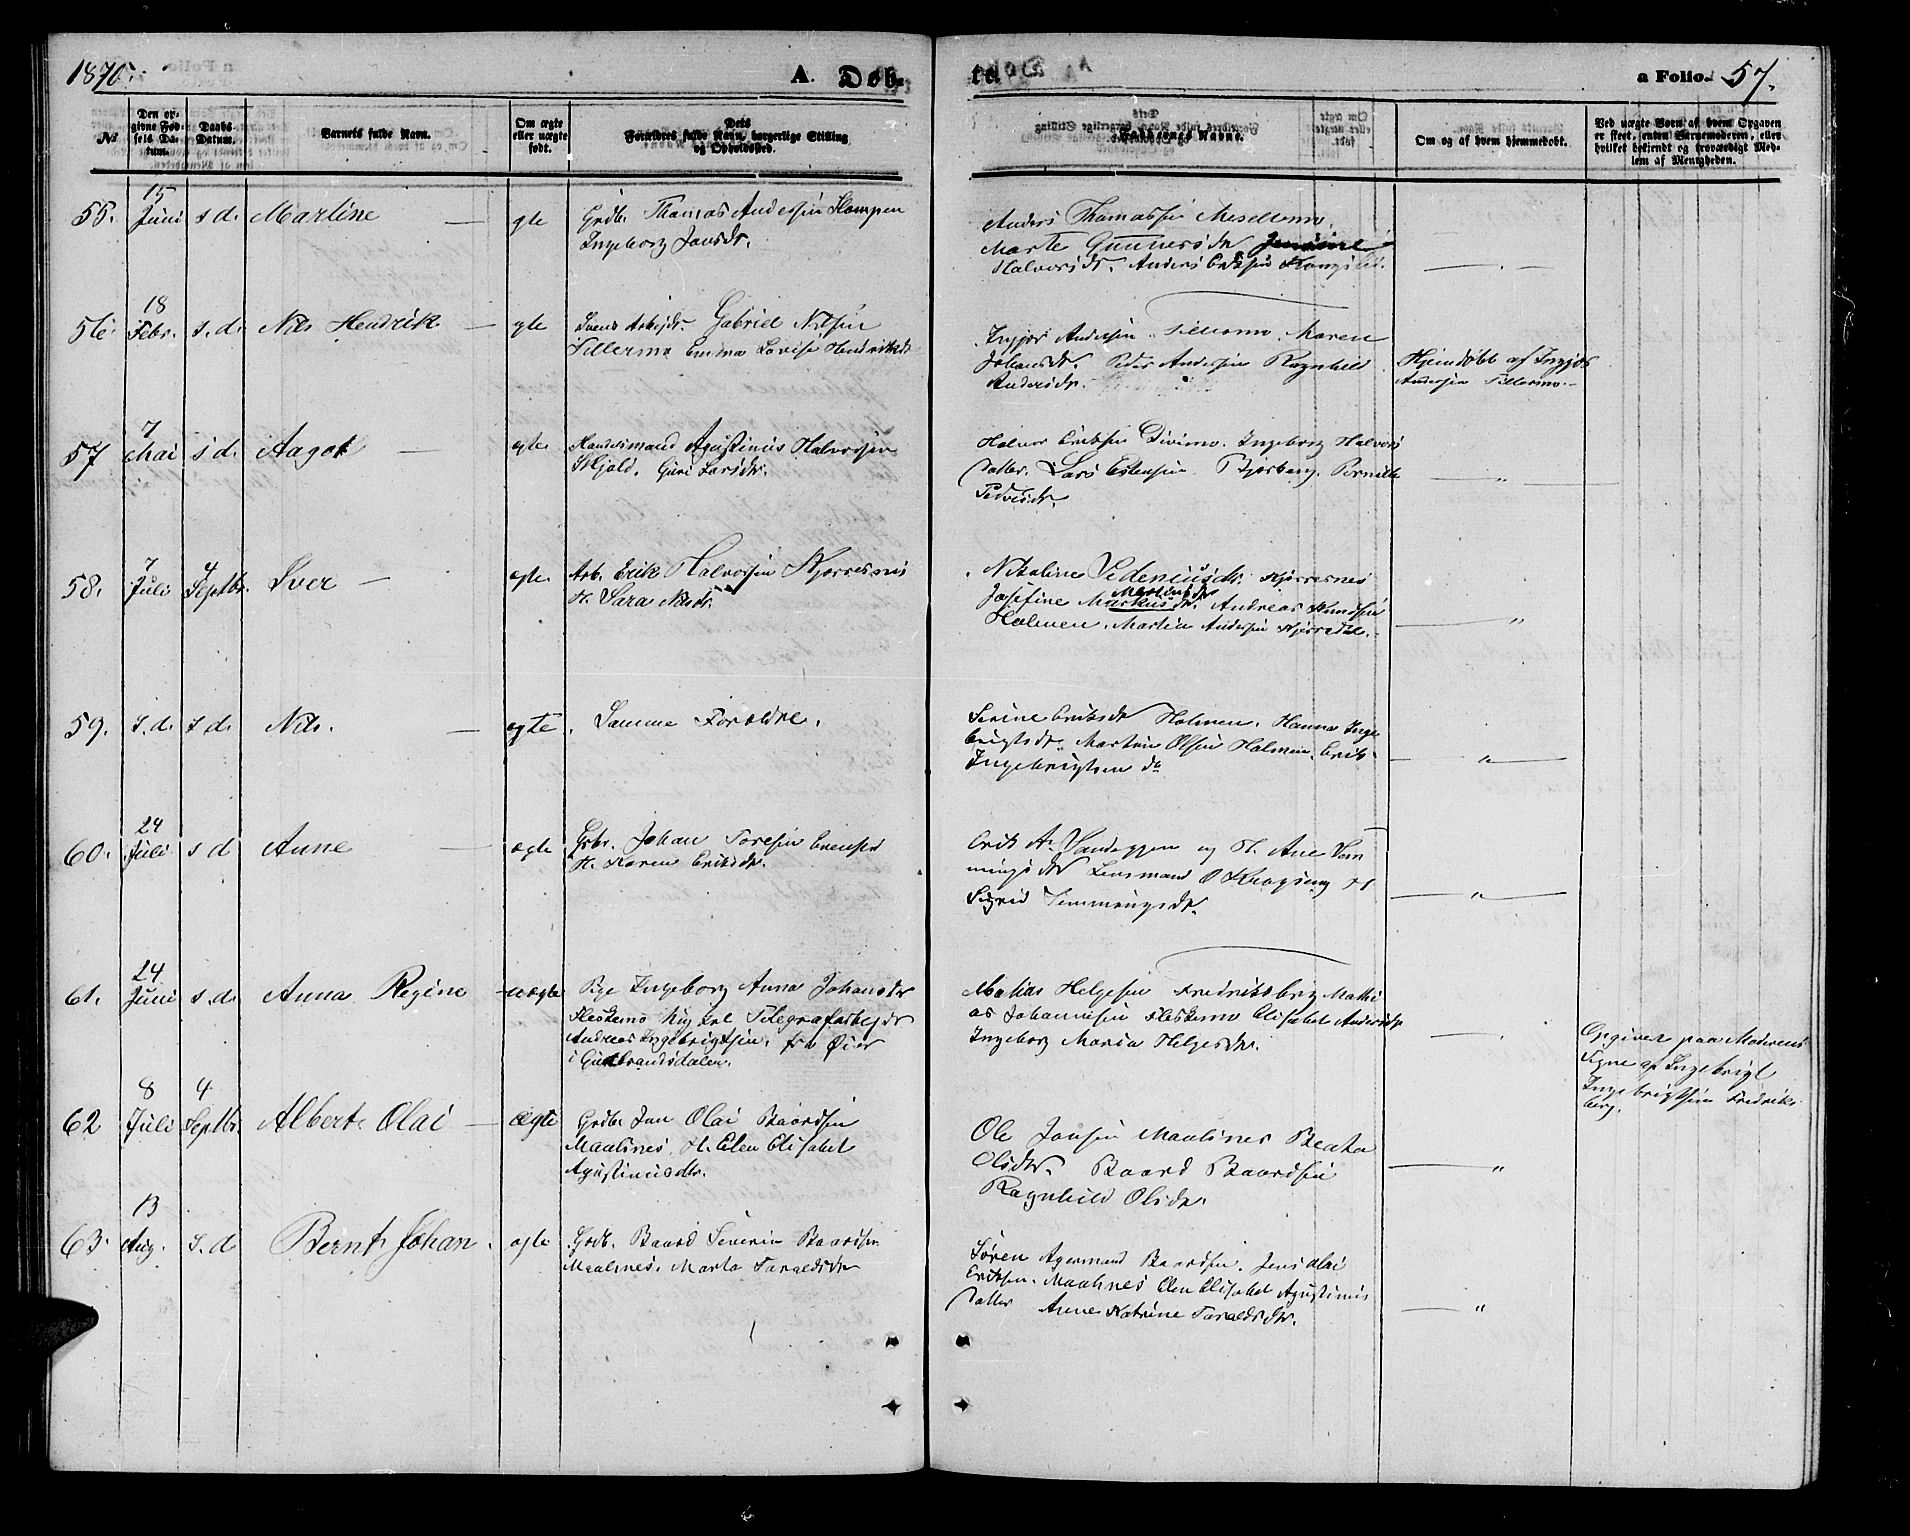 1870. A. Døb-
te. a Folio. 57.
No
Den opgivne Fødsels Datum.
Daabs Datum.
Barnets fulde Navn.
Om ægte eller uægte født.
Dets Forældres fulde Navn, borgerlige Stilling og Opholdssted.
Faddernes Navne.
Om og af hvem hjemmedøbt.
Ved uægte Børn af hvem Opgaven er skeet, enten Børnemoderen, eller hvilket bekjendt og troværdigt Medlem af Menigheden.
55. 15 Juni s d. Martine — gte Grdb. Thomas Andersen
Ingeborg Jonsdr.
Anders Thomassen
Marte Gunnersdr
Halvorsdr. Anders Eriksen
56. 18 Febr. s. d. Nils Hendrik — gte Arbejdr. Gabriel Nilsen
Tillermo Emma Lovise Hendriksdr
Ingjør Andersen Tillermo. Maren
Johansdr. Peder Andersen Ragnhild
Andersdr.
Hjemdøbt af Ingjør
Andersen Tillermo.
57 7 Mai s d. Aagot — egte Handesmand Agustinus Halvorsen
Skjold. Guri Larsdr.
Halvor Eriksen Divimo. Ingeborg Halvors
Datter. Lars Estensen Bjørberg. Pernille
— " —
58. 7 Juli 4 Septbr. Iver — egte. Arb. Erik Halvorsen Kjerresnes
H. Sara Nilsdr.
Nikoline Kjerresnes
Josefine Markusdr. Andreas Knudsen
Holmen. Martin Andersen
— "
59. s. d. s d. Nils. — egte. Samme Forældre.
Serine Eriksdr Holmen. Hanna Inge
brigtsdr. Martin Olsen Holmen. Erik
Ingebrigtsen do
— " —
60. 24 Juli s d Anne — ægte Grbr. Johan Toresen
H. Karen Eriksdr.
Erik A. og H. Ane Tem
mingsdr Lensmand O H
Sigrid Temmingsdr.
— " —
61. 24 Juni s. d. Anna Regine uægte Pge Ingeborg Anna Johansdr
Fleskemo Telegrafarbejdr
Andreas Ingebrigtsen. fra Øier
i Gudbrandsdalen.
Matias Helgesen Fredriksberg Mathi
as Johannesen Fleskemo Elisabet Andersdr
Ingeborg Maria Helgesdr.
Opgivet paa Moderens
Vegne af Ingebrigt
Ingebrigtsen Fredriks
berg.
62 8 Juli 4 Septbr. Albert Olai — ægte Grdbr Jon Olai Baardsen
Maalsnes. H. Elen Elisabet
Agustinusdtr.
Ole Jonsen Maalsnes Beata
Olsdtr. Baard Baardsen
Ragnhild Olsdr.
— "
63. 13 Aug. s. d Bernt Johan. egte Grdb. Baard Severin Baardsen
Maalsnes. Marta Taraldsdr
Søren Agermand Baardsen. Jens Olai
Eriksen. Maalsnes Elen Elisabet Agustinus
Datter Anne Katrine Taraldsdtr.
— "